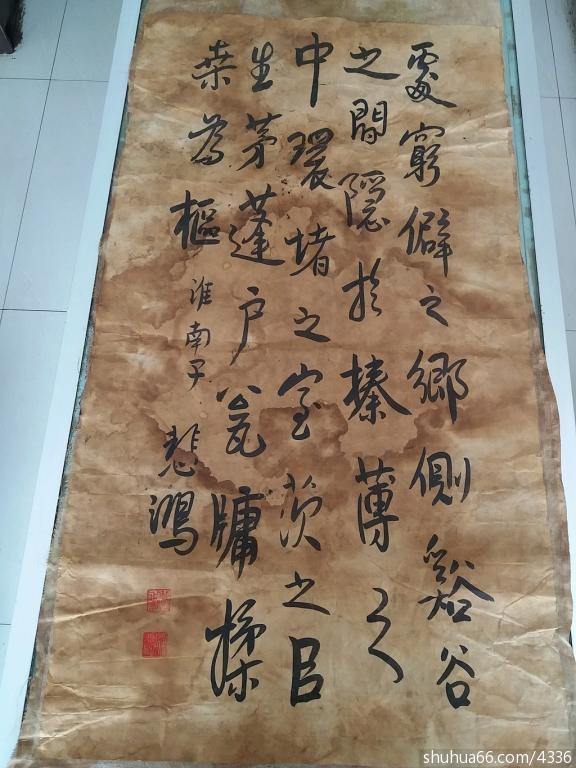 處窮僻之鄉側谿谷
之間隱於榛薄之
中環堵之室茨之㠯
生茅蓬户瓮牖揉
桒為樞 淮南子 悲鴻
shuhua66.com/4336